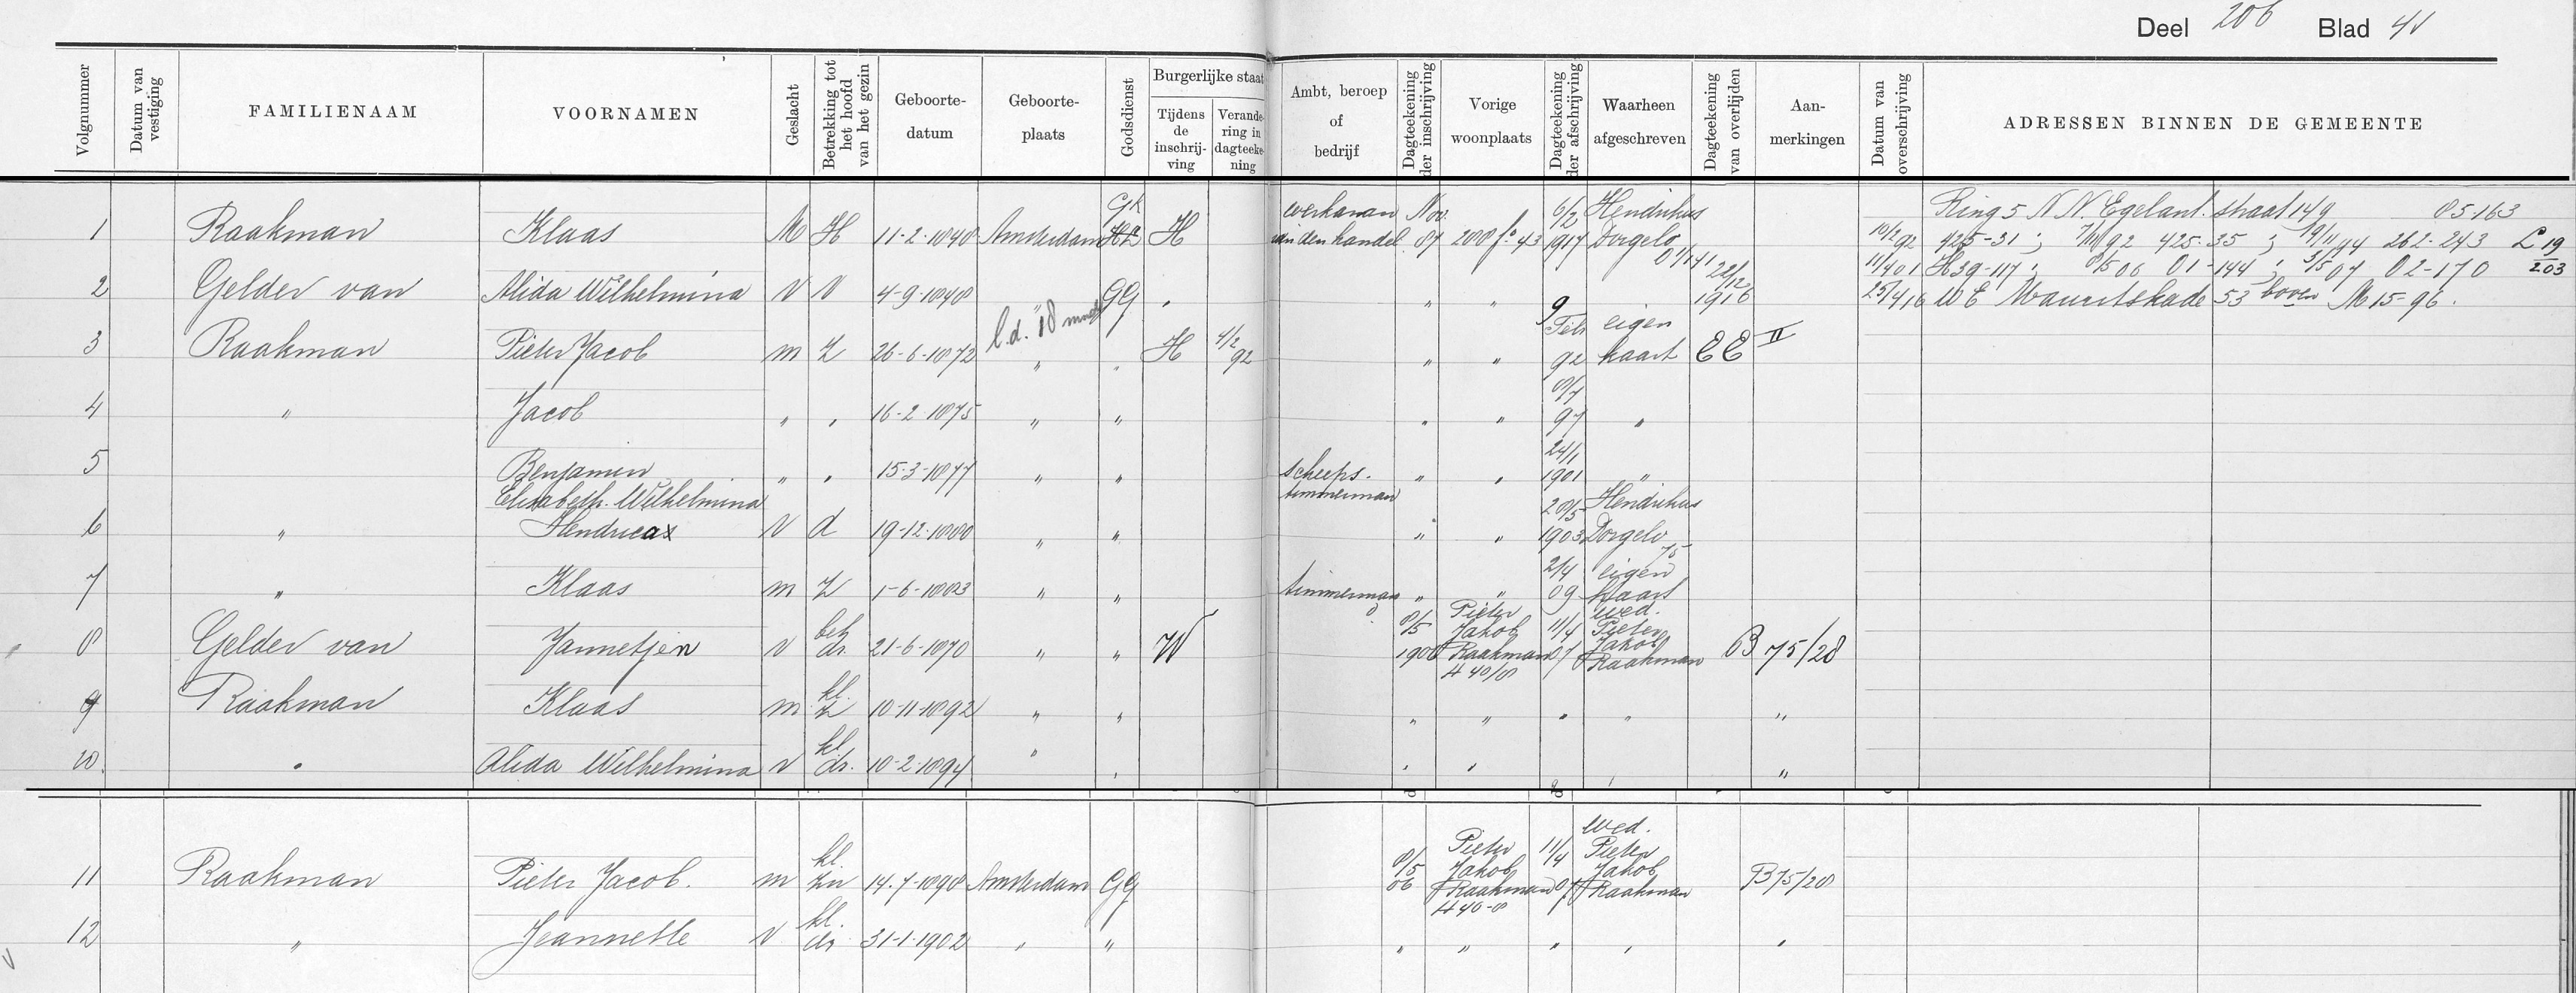 Deel 206 Blad 41
Volgnummer
Datum van vestiging
FAMILIENAAM
VOORNAMEN
Geslacht
Betrekking tot het hoofd van het gezin
Geboorte-datum
Geboorte-plaats
Godsdienst
Burgerlijke staat
Tijdens de inschrij-ving
Verande-ring in dagteeke-ning
Ambt, beroep of bedrijf
Dagteekening der inschrijving
Vorige woonplaats
Dagteekening der afschrijving
Waarheen afgeschreven
Dagteekening van overlijden
Aan-merkingen
Datum van overschrijving
ADRESSEN BINNEN DE GEMEENTE
1 Raakman Klaas M H 11-2-1848 Amsterdam H werkman in den handel Nov. 87 200 fo 43 6/2 1917 Hendrikus Dorgelo
Ring 5 N N. Egelant. straat 149 05.163
10/2 92 425-31 ; 425-35 ; 262-243 L 19
11/4 01 H 39-117 ; 8/5 06 01-144 ; 3/5 07 02-170 203
2 Gelder van Alida Wilhelmina V V 4-9-1848 " GG " " 22/12 1916
25/4 16 WE Mauritskade 53 boven M 15-96.
3 Raakman Pieter Jacob m Z 26-6-1872 l.d. 18 " " H 4/2 92 " " 9 Feb 92 eigen kaart EE II
4 " Jacob " " 16-2-1875 " " " " 8/7 97 "
5 Benjamin " " 15-3-1877 " " scheeps-timmerman " " 24/1 1901 "
6 " Elisabeth Wilhelmina Hendrica V d 19-12-1880 " " " " 28/5 1903 Hendrikus Dorgelo 75
7 " Klaas m Z 1-6-1883 " " timmerman " " 2/4 09 eigen kaart
8 Gelder van Jannetjen V beh dr. 21-6-1870 " " W 8/5 1906 Pieter Jakob Raakman H 40/8 11/4 07 wed. Pieter Jakob Raakman B 75/28
9 Raakman Klaas m kl. Z 10-11-1892 " " " " " " "
10. " Alida Wilhelmina V kl dr. 10-2-1894 " " " " " "
11 Raakman Pieter Jacob. m kl. Zn 14-7-1898 Amsterdam GG 8/5 06 Pieter Jakob Raakman H 40-8 11/4 07 wed. Pieter Jakob Raakman B 75/28
12 " Jeannette V kl. dr 31-1-1902 " " " " " " "